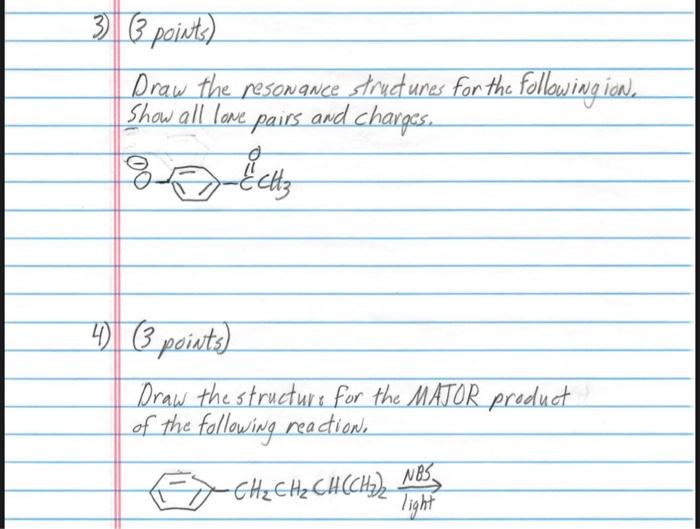 3) (3 points)
Draw the resonance structures for the following ion.
Show all lone pairs and charges.
⊖
O
O
||
-CCH3
4) (3 points)
Draw the structure for the MAJOR product
of the following reaction.
-CH2CH2CH(CH3)2 NBS
light